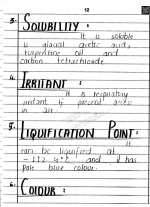 12
3. SOLUBILITY :
It is soluble
in glacial acetic acid,
turpentine oil and
carbon tetrachloride
4. IRRITANT :
It is respiratory
irritant if present excess
in air.
5. LIQUIFICATION POINT:
It
can be liquified at
-112.4°C and it has
pale blue colour.
6. COLOUR :